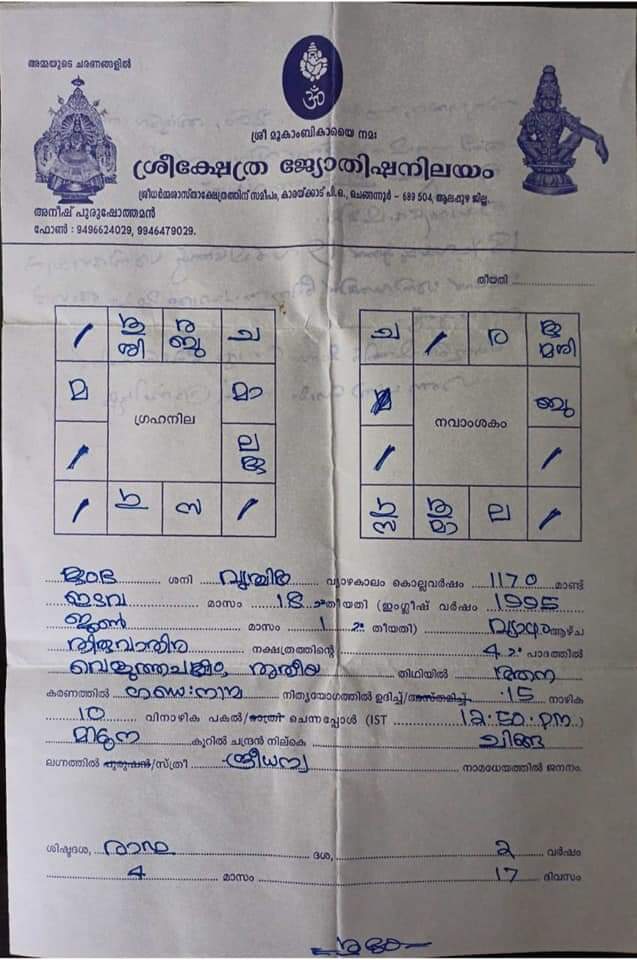 അമ്മയുടെ ചരണങ്ങളിൽ
ॐ
ശ്രീ മൂകാംബികായൈ നമഃ
ശ്രീക്ഷേത്ര ജ്യോതിഷനിലയം
ശ്രീധർമ്മശാസ്താക്ഷേത്രത്തിന് സമീപം, കാരയ്ക്കാട് പി.ഒ., ചെങ്ങന്നൂർ – 689 504, ആലപ്പുഴ ജില്ല.
അനീഷ് പുരുഷോത്തമൻ
ഫോൺ : 9496624029, 9946479029.
തീയതി
ച
മ ഗ്രഹനില മാ
ല
സ
ച ര
നവാംശകം ബു
മാ ല
കുംഭ ശനി വൃശ്ചിക വ്യാഴകാലം കൊല്ലവർഷം 1170 മാണ്ട്
ഇടവ മാസം 18 തീയതി (ഇംഗ്ലീഷ് വർഷം 1995
ജൂൺ മാസം 1 തീയതി) വ്യാഴം ആഴ്ച
തിരുവാതിര നക്ഷത്രത്തിന്റെ 4 പാദത്തിൽ
വെളുത്തപക്ഷം, തൃതീയ തിഥിയിൽ
കരണത്തിൽ നിത്യയോഗത്തിൽ ഉദിച്ച്/അസ്തമിച്ച് 15 നാഴിക
10 വിനാഴിക പകൽ/രാത്രി ചെന്നപ്പോൾ (IST 12:50 pm)
മിഥുന കൂറിൽ ചന്ദ്രൻ നില്കെ ചിങ്ങ
ലഗ്നത്തിൽ പുരുഷൻ/സ്ത്രീ ശ്രീധന്യ നാമധേയത്തിൽ ജനനം.
ശിഷ്ടദശ, രാഹു ദശ, 2 വർഷം
4 മാസം 17 ദിവസം